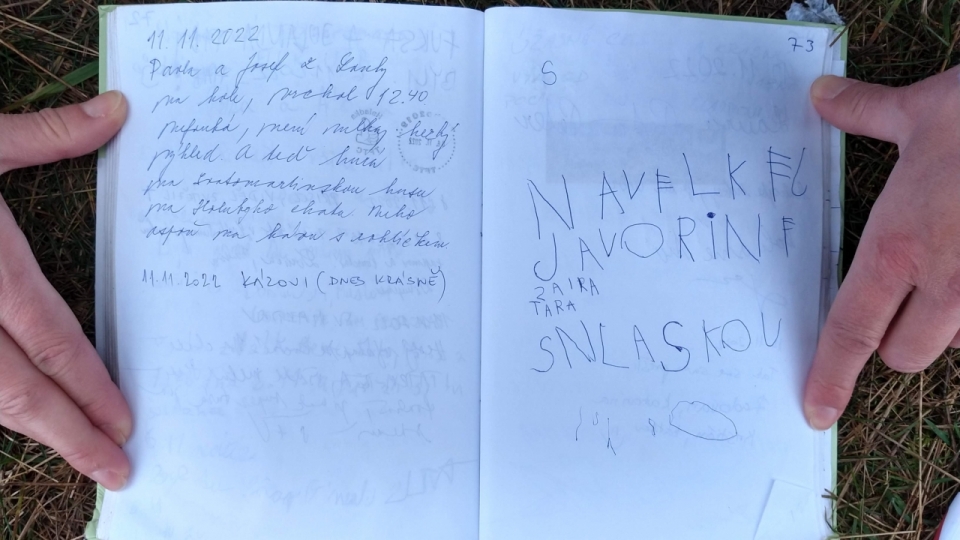 11.11.2022
Pavla a Josef z
na kole, vrchol 12.40
nefouká, není mlha, hezký
výhled. A teď hurá
na Svatomartinskou husu
na Holubyho chatu nebo
aspoň na kávu s rohlíčkem
11.11.2022 KÁZOVI (DNES KRÁSNĚ)
73
S
NAVELKEJ
JAVORINE
ZAIRA
TARA
SNLASKOU